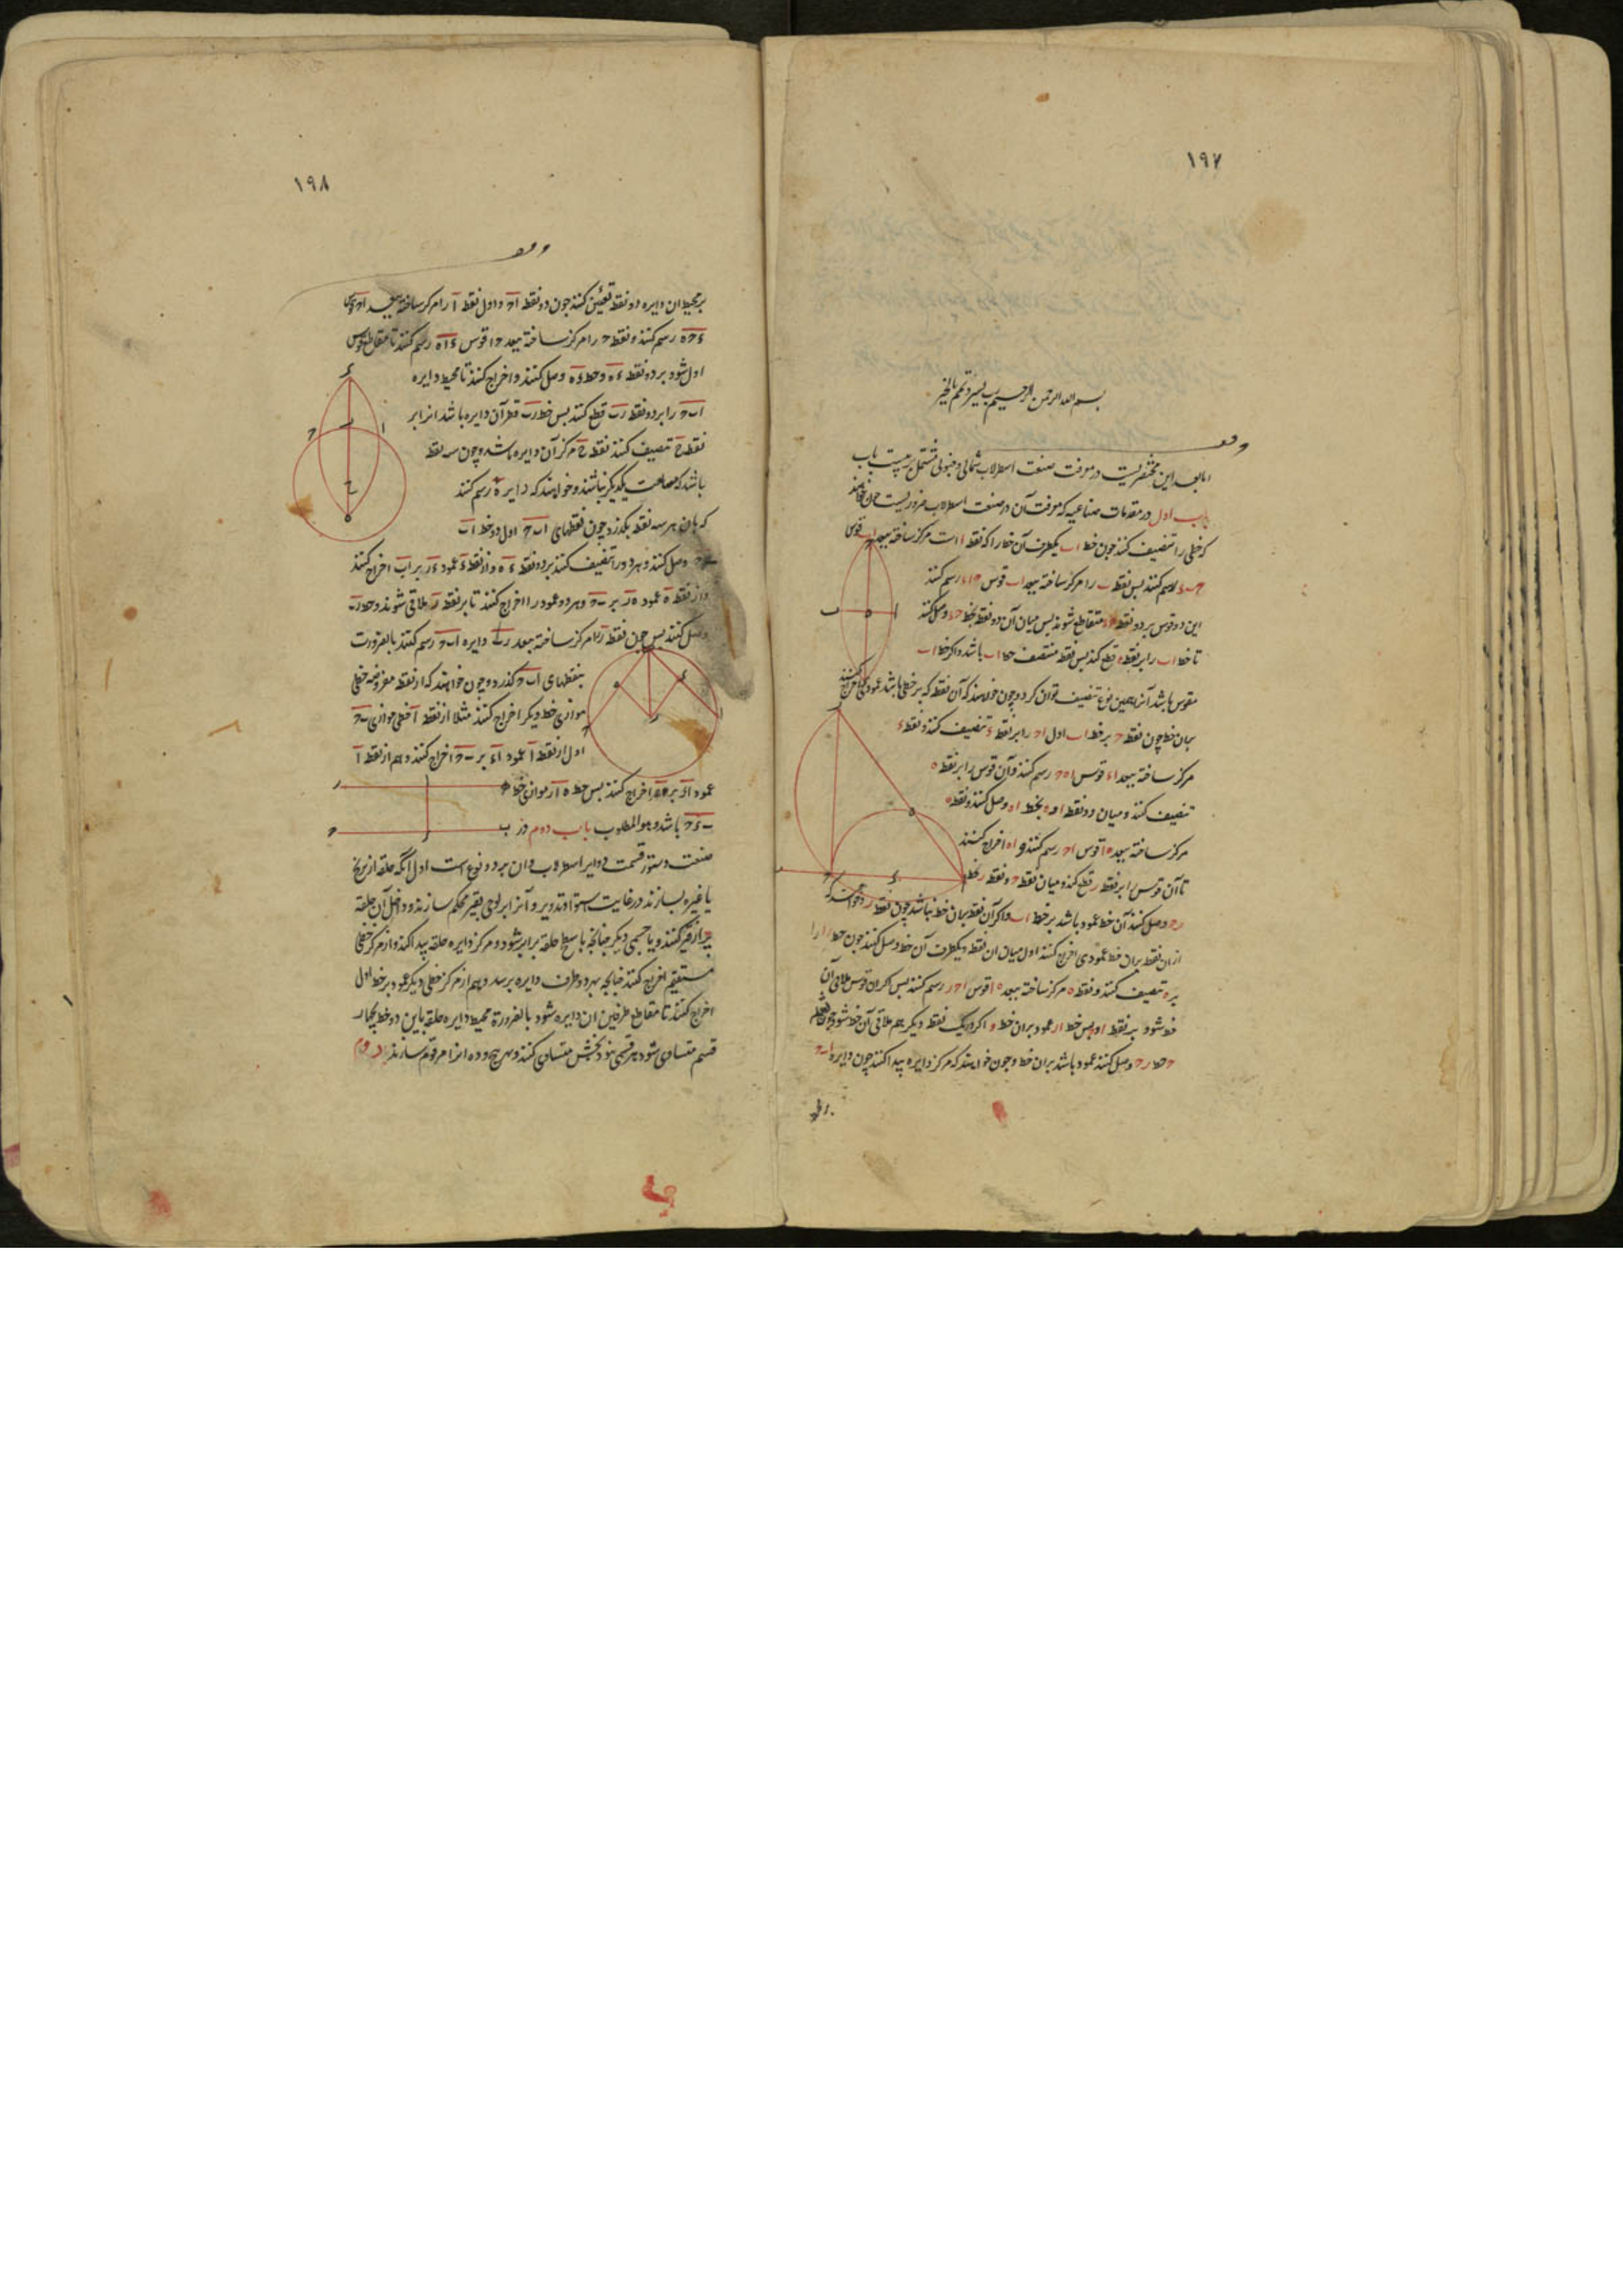 ۱۹۷
وقف
بسم الله الرحمن الرحیم رب یسر و تمم بالخیر
اما بعد این مختصریست در معرفت صنعت اسطرلاب شمالی و جنوبی مشتمل بر بیست باب
باب اول در مقدمات صناعیه که معرفت آن در صنعت اسطرلاب ضروریست چون خواهند
که خطی را تنصیف کنند چون خط اب یکطرف آن خط را که نقطه ا است مرکز ساخته ببعد اب قوس
رسم کنند پس نقطه ب را مرکز ساخته ببعد اب قوس رسم کنند
این دو قوس بر دو نقطه متقاطع شوند پس میان آن دو نقطه بخط وصل کنند
تا خط اب را بر نقطه ه قطع کند پس نقطه منتصف خط اب باشد و اگر خط اب
مقوس باشد آنرا بهمین نوع تنصیف توان کرد و چون خواهند که از نقطه که بر خطی باشد عمودی اخراج کنند
بران خط چون نقطه ح بر خط اب اول اح را بر نقطه ء تنصیف کنند و نقطه ء
مرکز ساخته ببعد اء قوس اه ح رسم کنند و آن قوس را بر نقطه ه
تنصیف کنند و میان دو نقطه ا و ه بخط اه وصل کنند و نقطه ه
مرکز ساخته ببعد ه ا قوس اح رسم کنند و اه اخراج کنند
تا آن قوس را بر نقطه ر قطع کند و میان نقطه ح و نقطه ر بخط
رح وصل کنند آن خط عمود باشد بر خط اب و اگر آن نقطه بران خط نباشد چون نقطه ر و خواهند که
از ان نقطه بران خط عمودی اخراج کنند اول میان ان نقطه و یکطرف آن خط وصل کنند چون خط ار
بر ه تنصیف کنند و نقطه ه مرکز ساخته ببعد ه ا قوس اح ر رسم کنند پس اگر ان قوس ملاقی آن
خط شود بر نقطه ا پس خط ار عمود بران خط و اگر در یک نقطه دیگر هم ملاقی آن خط شود چون نقطه
ح خط رح وصل کنند عمود باشد بران خط و چون خواهند که مرکز دایره پیدا کنند چون دایره اب ح
بر
۱۹۸
وقف
بر محیط ان دایره دو نقطه تعیین کنند چون دو نقطه اح و اول نقطه ا را مرکز ساخته ببعد اح قوس
ء ح ه رسم کنند و نقطه ح را مرکز ساخته ببعد ح ا قوس ء ا ه رسم کنند تا مقاطع قوس
اول شود بر دو نقطه ء ه و خط ء ه وصل کنند و اخراج کنند تا محیط دایره
اب ح را بر دو نقطه رب قطع کند پس خط رب قطر آن دایره باشد انرا بر
نقطه ح تنصیف کنند نقطه ح مرکز آن دایره باشد و چون سه نقطه
باشد که یکدیگر نباشند و خواهند که دایره رسم کنند
که بان هر سه نقطه بگذرد چون نقطهای اب ح اول دو خط اب
ب ح وصل کنند و هر دو را تنصیف کنند بر دو نقطه ء ه و از نقطه ء عمود ء ر بر اب اخراج کنند
و از نقطه ه عمود ه ر بر ب ح و هر دو عمود را اخراج کنند تا بر نقطه ر ملاقی شوند و خط رب
وصل کنند پس چون نقطه ر را مرکز ساخته ببعد رب دایره اب ح رسم کنند بالضرورت
بنقطهای اب ح گذرد و چون خواهند که از نقطه مفروضه خطی
موازی خط دیگر اخراج کنند مثلا از نقطه ا خطی موازی ب ح
اول از نقطه ا عمود اء بر ب ح اخراج کنند و هم از نقطه ا
عمود ار بر اخراج کنند پس خط ه ا ر موازی خط
ب ء ح باشد و هو المطلوب باب دوم در
صنعت دستور قسمت دوایر اسطرلاب و ان بر دو نوع است اول انکه حلقه از برنج
یا غیره بسازند در غایت استوا و تدویر و آنرا بر لوحی بقیر محکم سازند و داخل آن حلقه
پر از قیر کنند و یا جسمی دیگر چنانچه با سطح حلقه برابر شود و مرکز دایره حلقه پیدا کنند و از مرکز خطی
مستقیم اخراج کنند چنانچه بهر دو طرف دایره برسد و هم از مرکز خطی دیگر عمود بر خط اول
اخراج کنند تا مقاطع طرفین ان دایره شود بالضرورة محیط دایره حلقه باین دو خط بچهار
قسم متساوی شود هر قسمی بنود بخش متساوی کنند و هر پنج و ده انرا مرقوم سازند دوم